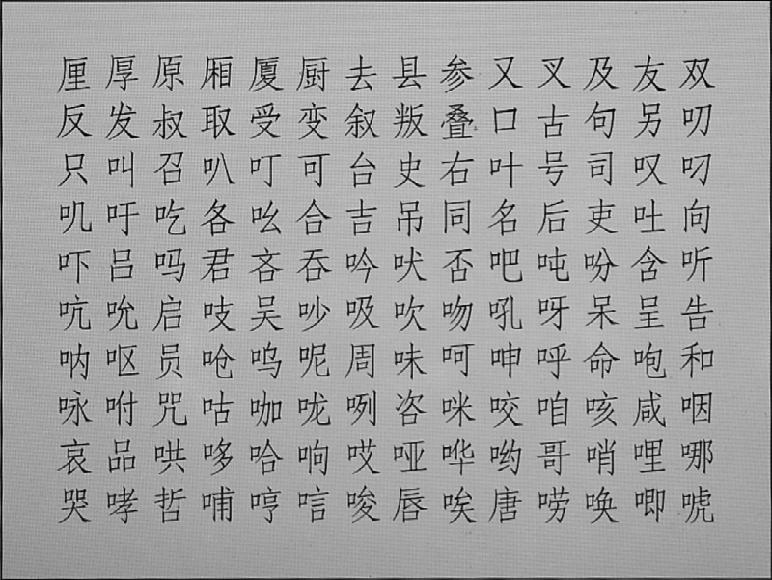 厘厚原厢厦厨去县参又叉及友双
反发叔取受变叙叛叠口古句另叨
只叫召叭叮可台史右叶号司叹叼
叽吁吃各吆合吉吊同名后吏吐向
吓吕吗君吝吞吟吠否吧吨吩含听
吭吮启吱吴吵吸吹吻吼呀呆呈告
呐呕员呛呜呢周味呵呻呼命咆和
咏咐咒咕咖咙咧咨咪咬咱咳咸咽
哀品哄哆哈响哎哑哗哟哥哨哩哪
哭哮哲哺哼唁唆唇唉唐唠唤唧唬